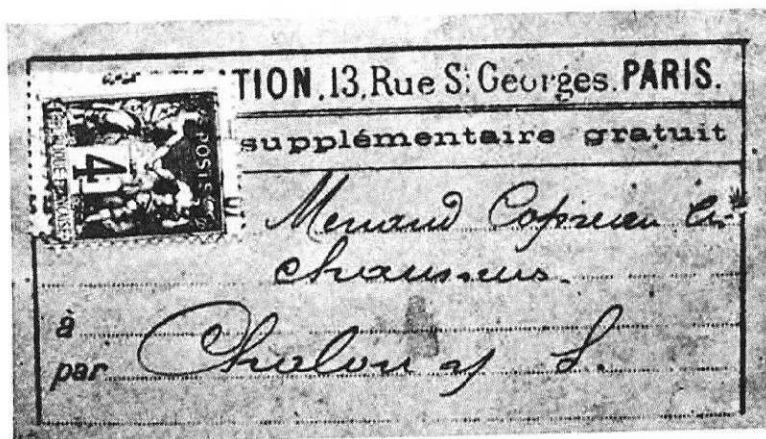 TION, 13, Rue St Georges. PARIS.
supplémentaire gratuit
POSTES
4
Menand
chaussures.
à
par Chalon s/ S.